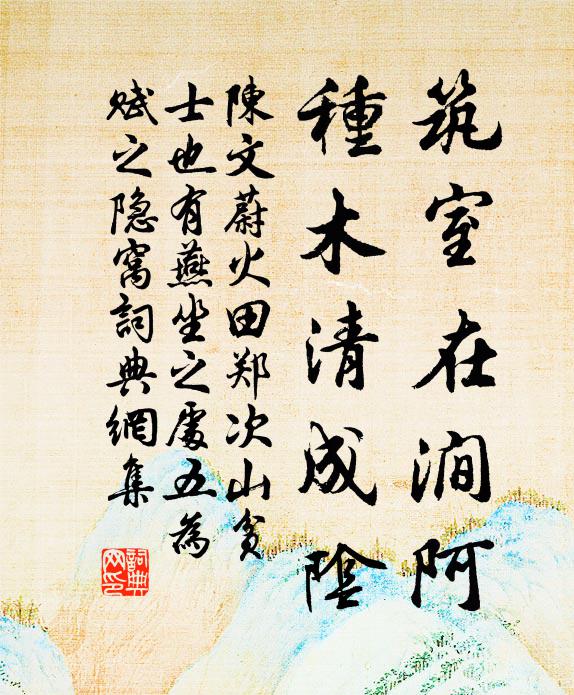 筑室在涧阿
種木清成陰
陳文蔚火田郑次山貧
士也有燕坐之處五為
赋之隐窝詞典網集
詞典